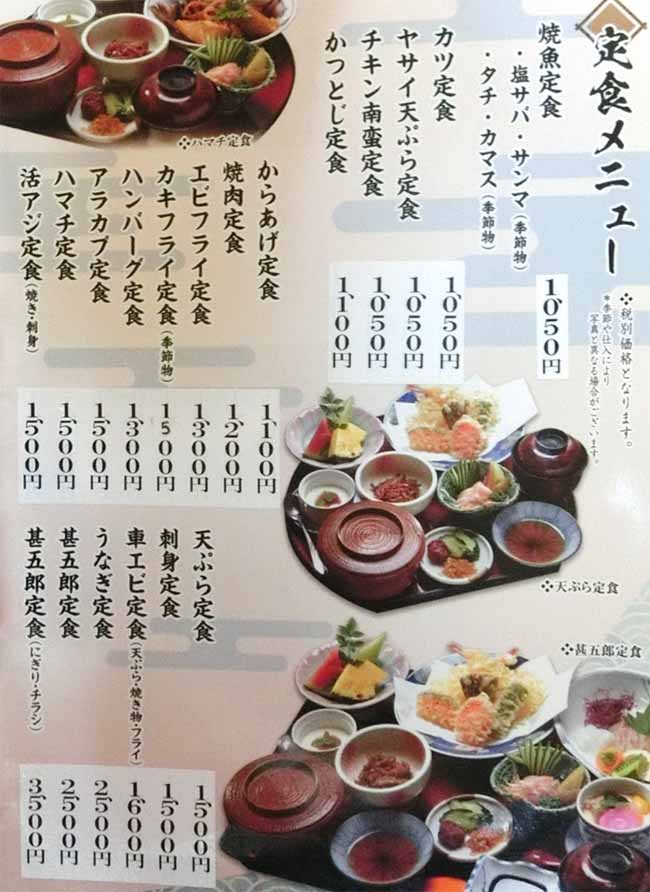 定食メニュー
❖税別価格となります。
＊季節や仕入により
写真と異なる場合がございます。
焼魚定食
・塩サバ・サンマ（季節物）
・タチ・カマス（季節物）
カツ定食
ヤサイ天ぷら定食
チキン南蛮定食
かつとじ定食
1,050円
1,050円
1,050円
1,050円
1,100円
❖ハマチ定食
からあげ定食
焼肉定食
エビフライ定食
カキフライ定食（季節物）
ハンバーグ定食
アラカブ定食
ハマチ定食
活アジ定食（焼き・刺身）
1,100円
1,200円
1,300円
1,500円
1,300円
1,500円
1,500円
1,500円
❖天ぷら定食
天ぷら定食
刺身定食
車エビ定食（天ぷら・焼き物・フライ）
うなぎ定食
甚五郎定食
甚五郎定食（にぎり・チラシ）
1,500円
1,500円
1,600円
2,500円
2,500円
3,500円
❖甚五郎定食